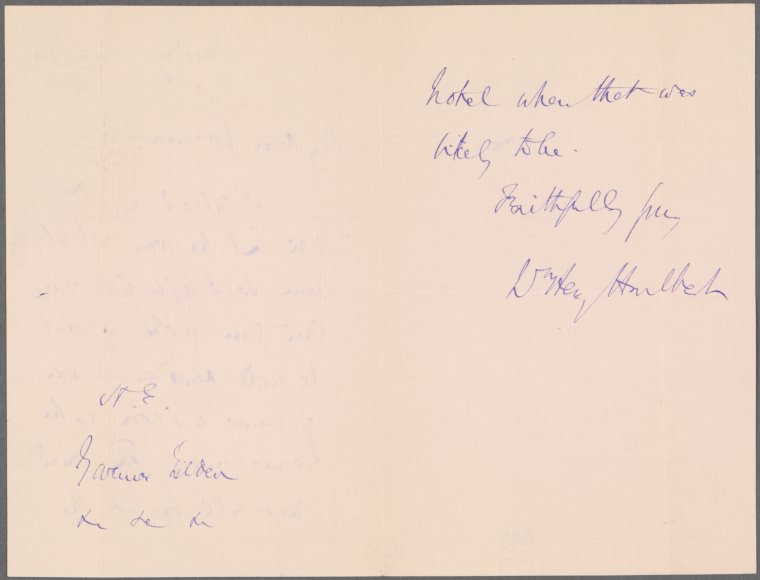 hotel when that was
likely to be.
Faithfully yrs,
Wm Henry Hurlbert
H. E.
Governor Tilden
&c &c &c